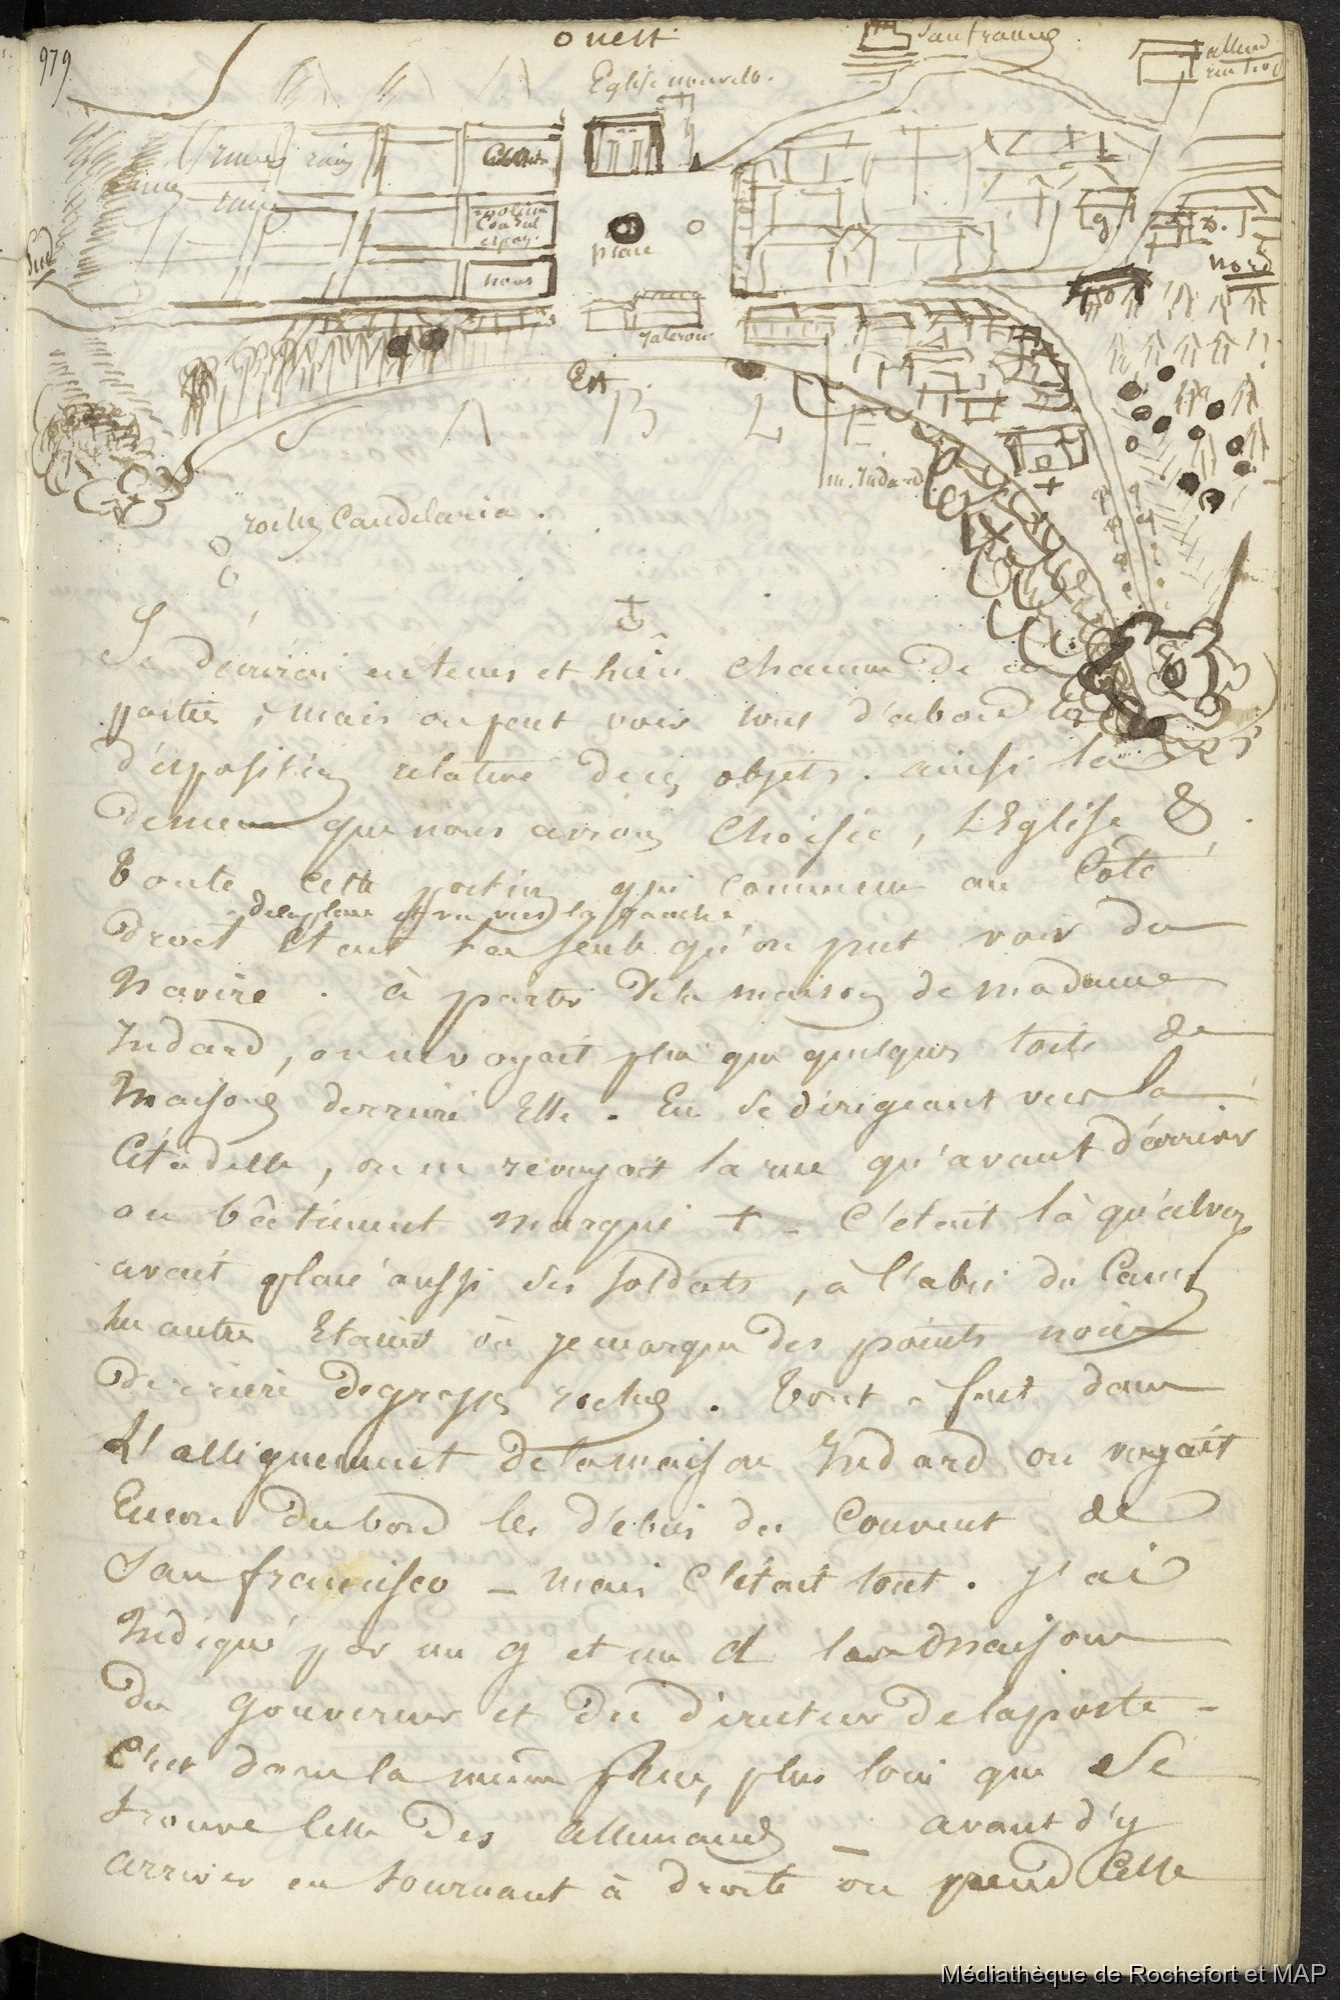 979
ouest
San francisco
allemd
Eglise nouvelle.
ruines
ruines
consul
espag.
nous
place
g
nord
Sud
Est
SABLE
m. Indard
roches Candelaria.
Je décrirai en tems et lieu chacune de ces
parties, mais on peut voir tout d'abord la
disposition relative de ces objets. ainsi la
demeure que nous avions choisie, L'Eglise &
Toute cette portion qui commence au Côté
de la place et va vers la gauche
droit etait la seule qu'on put voir du
Navire. à partir de la maison de madame
Indard, on ne voyait plus que quelques toits de
Maisons derriere Elle. En se dirigeant vers la
Citadelle, on ne revoyait la rue qu'avant d'arriver
au bâtiment marqué + - C'etait là qu'alvez
avait placé aussi ses soldats, à l'abri du Canon
les autres Etaient où je marque des points noirs
derriere de grosses roches. Tout à fait dans
L'allignement de la maison Indard on voyait
Encore du bord les débris du Couvent de
San francisco - mais C'était tout. J'ai
Indiqué par un g et un d les maisons
du gouverneur et du directeur de la poste -
C'est dans la même rue, plus loin que se
trouve celle des allemands - avant d'y
arriver en tournant à droite on prend Celle
Médiathèque de Rochefort et MAP